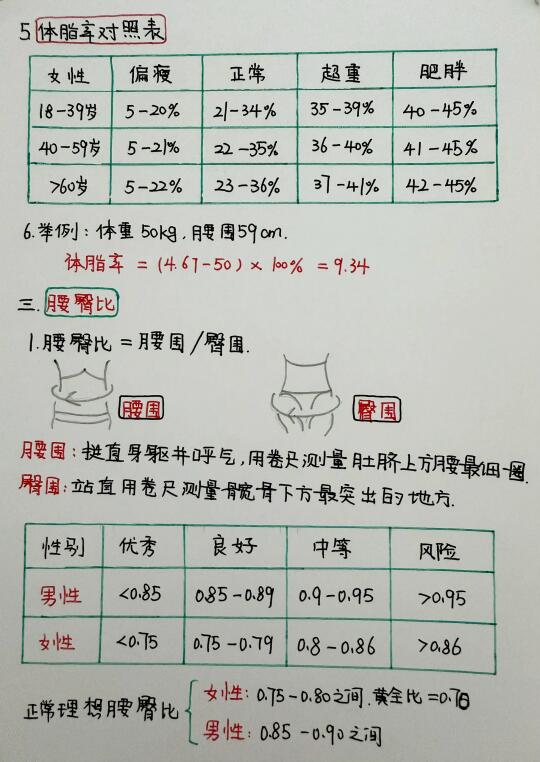 5. 体脂率对照表
女性 偏瘦 正常 超重 肥胖
18-39岁 5-20% 21-34% 35-39% 40-45%
40-59岁 5-21% 22-35% 36-40% 41-45%
>60岁 5-22% 23-36% 37-41% 42-45%
6.举例：体重50kg，腰围59cm.
体脂率 = (4.67-50) × 100% = 9.34
三. 腰臀比
1.腰臀比 = 腰围/臀围.
腰围 臀围
腰围：挺直身躯并呼气，用卷尺测量肚脐上方腰最细一圈.
臀围：站直用卷尺测量髋骨下方最突出的地方.
性别 优秀 良好 中等 风险
男性 <0.85 0.85-0.89 0.9-0.95 >0.95
女性 <0.75 0.75-0.79 0.8-0.86 >0.86
正常理想腰臀比
女性：0.75-0.80之间.黄金比=0.70
男性：0.85-0.90之间